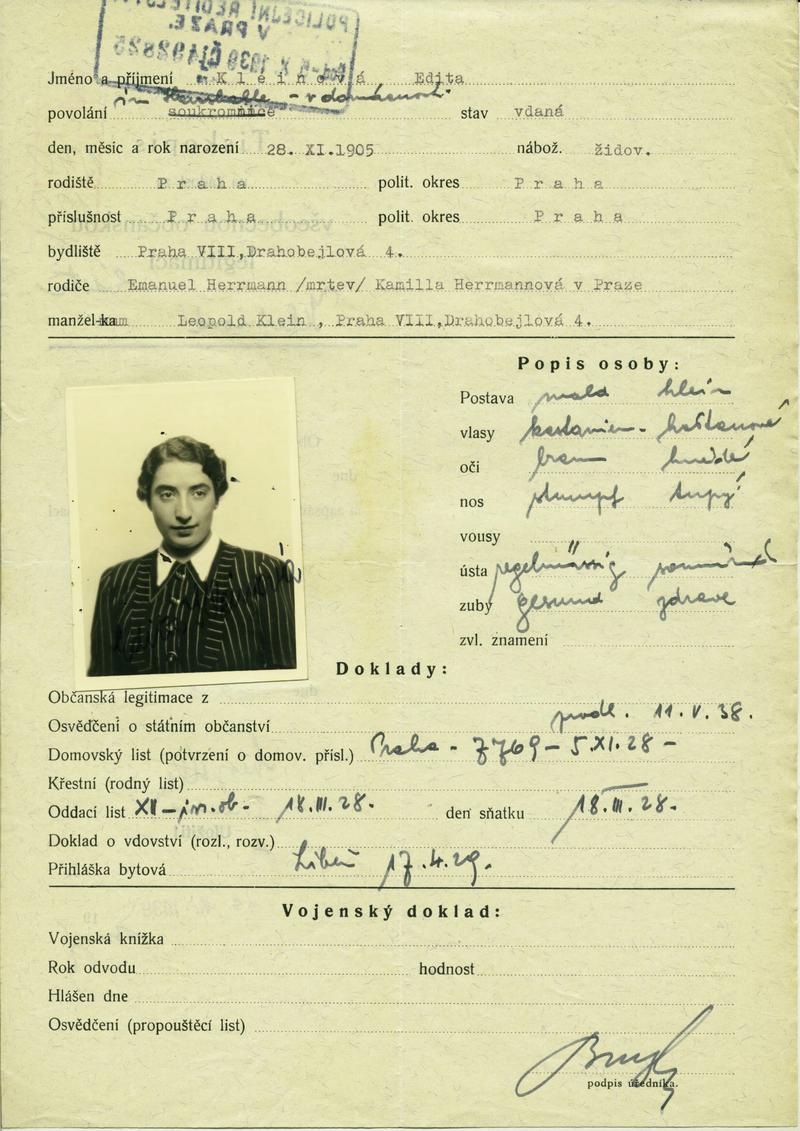 Jméno a příjmení Kleinová Edita
v domácnosti
povolání soukromnice stav vdaná
den, měsíc a rok narození 28. XI.1905 nábož. židov.
rodiště Praha polit. okres Praha
příslušnost Praha polit. okres Praha
bydliště Praha VIII,Drahobejlová 4.
rodiče Emanuel Herrmann /mrtev/ Kamilla Herrmannová v Praze
manžel-ka Leopold Klein , Praha VIII,Drahobejlová 4.
Popis osoby:
Postava klein
vlasy kastanien- kaštanové
oči braun hnědé
nos stumpf tupý
vousy
ústa regelmässig souměrná
zuby gesund zdravé
zvl. znamení
Doklady:
Občanská legitimace z
Osvědčení o státním občanství prodl. 11.V.38.
Domovský list (potvrzení o domov. přísl.) Praha - 7769 - 5.XI.28 -
Křestní (rodný list)
Oddací list XII - 18.III.28. den sňatku 18.III.28.
Doklad o vdovství (rozl., rozv.)
Přihláška bytová Libeň 17.4.29.
Vojenský doklad:
Vojenská knížka
Rok odvodu hodnost
Hlášen dne
Osvědčení (propouštěcí list)
podpis úředníka.